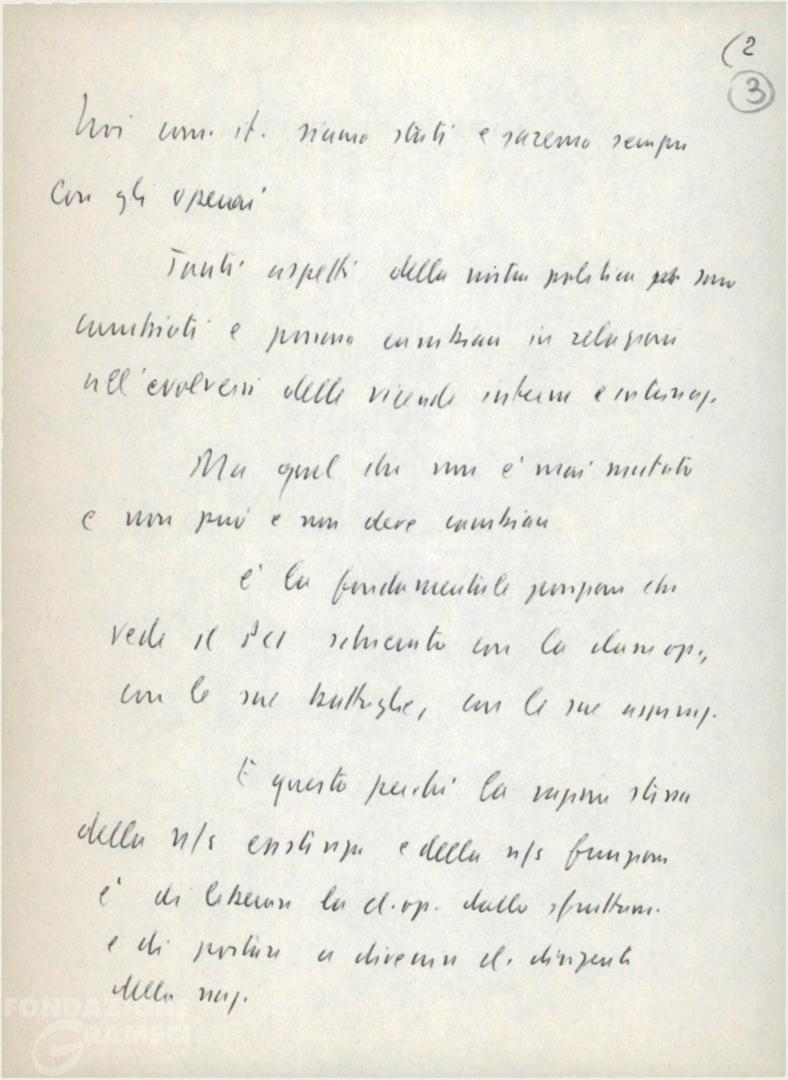 (2
3
Noi com. it. siamo stati e saremo sempre
con gli operai
Tanti aspetti della nostra politica sono
cambiati e possono cambiare in relazione
all'evolversi delle vicende interne e internaz.
Ma quel che non è mai mutato
e non può e non deve cambiare
è la fondamentale posizione che
vede il PCI schierato con la classe op.,
con le sue battaglie, con le sue aspiraz.
E questo perché la ragione stessa
della n/s esistenza e della n/s funzione
è di liberare la cl. op. dallo sfruttam.
e di portare a divenire cl. dirigente
della naz.
FONDAZIONE
GRAMSCI